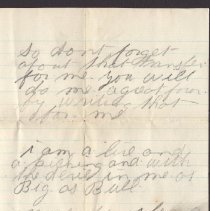 So dont forget
about that transfer
for me. you will
do me a great favor
by writing that
for me

i am a live and
a kicking and with
the devil in me as
Big as Bull